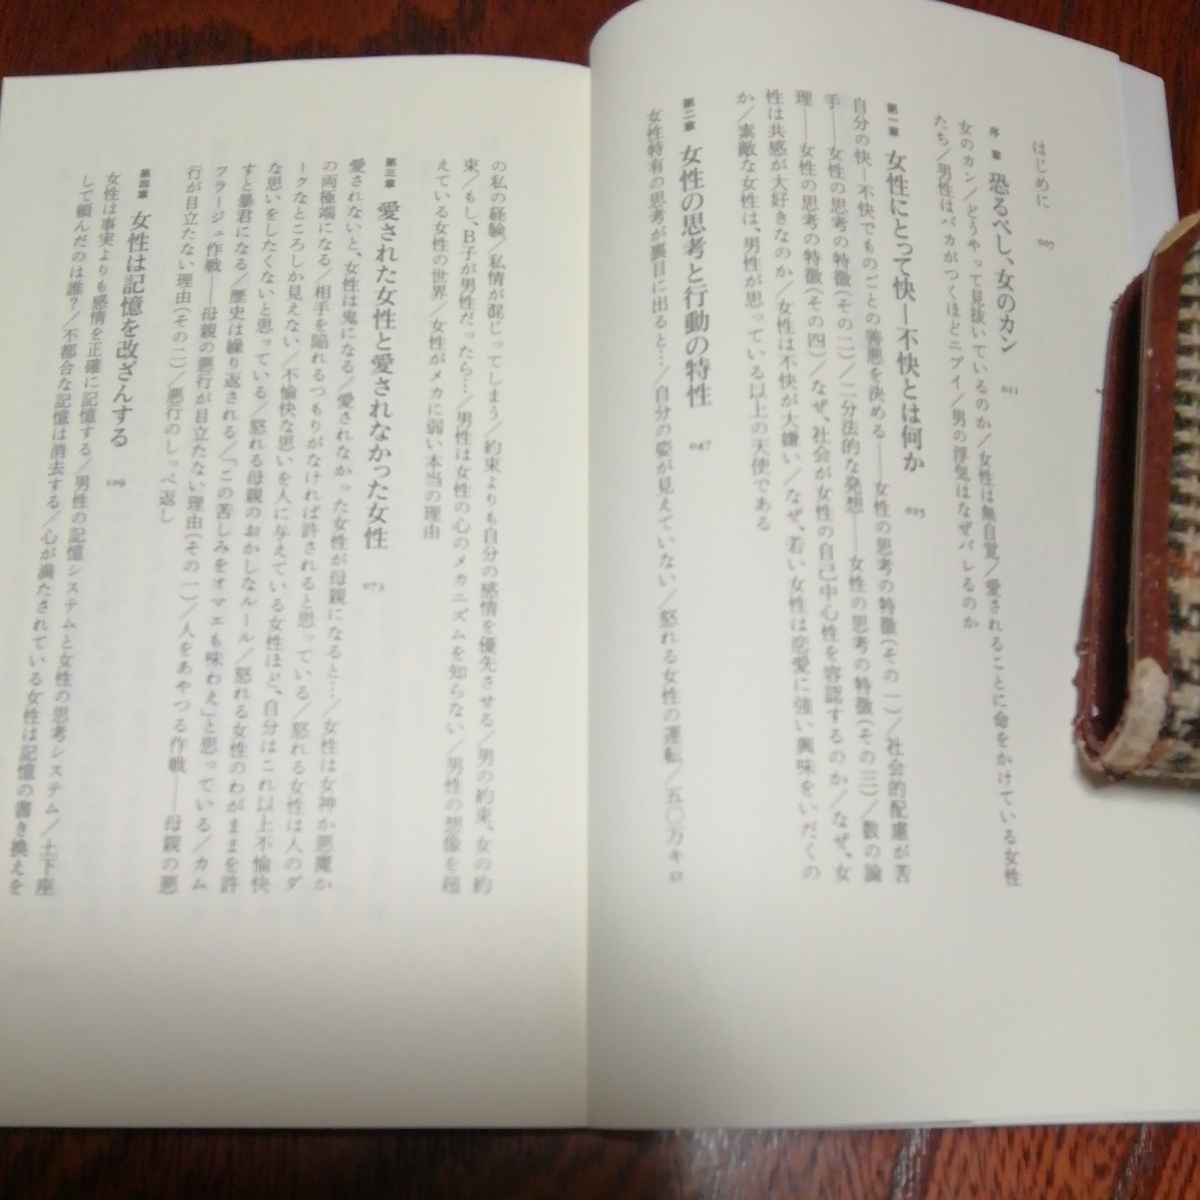 はじめに 007
序章 恐るべし、女のカン 011
女のカン/どうやって見抜いているのか/女性は無自覚/愛されることに命をかけている女性
たち/男性はバカがつくほどニブイ/男の浮気はなぜバレるのか
第一章 女性にとって快―不快とは何か 025
自分の快―不快でものごとの善悪を決める――女性の思考の特徴(その一)/社会的配慮が苦
手――女性の思考の特徴(その二)/二分法的な発想――女性の思考の特徴(その三)/数の論
理――女性の思考の特徴(その四)/なぜ、社会が女性の自己中心性を容認するのか/なぜ、女
性は共感が大好きなのか/女性は不快が大嫌い/なぜ、若い女性は恋愛に強い興味をいだくの
か/素敵な女性は、男性が思っている以上の天使である
第二章 女性の思考と行動の特性 047
女性特有の思考が裏目に出ると…/自分の姿が見えていない/怒れる女性の運転/五〇万キロ
の私の経験/私情が混じってしまう/約束よりも自分の感情を優先させる/男の約束、女の約
束/もし、B子が男性だったら…/男性は女性の心のメカニズムを知らない/男性の想像を超
えている女性の世界/女性がメカに弱い本当の理由
第三章 愛された女性と愛されなかった女性 073
愛されないと、女性は鬼になる/愛されなかった女性が母親になると…/女性は女神か悪魔か
の両極端になる/相手を陥れるつもりがなければ許されると思っている/怒れる女性は人のダ
ークなところしか見えない/不愉快な思いを人に与えている女性ほど、自分はこれ以上不愉快
な思いをしたくないと思っている/怒れる母親のおかしなルール/怒れる女性のわがままを許
すと暴君になる/歴史は繰り返される/「この苦しみをオマエも味わえ」と思っている/カム
フラージュ作戦――母親の悪行が目立たない理由(その一)/人をあやつる作戦――母親の悪
行が目立たない理由(その二)/悪行のしっぺ返し
第四章 女性は記憶を改ざんする 109
女性は事実よりも感情を正確に記憶する/男性の記憶システムと女性の思考システム/土下座
して頼んだのは誰?/不都合な記憶は消去する/心が満たされている女性は記憶の書き換えを